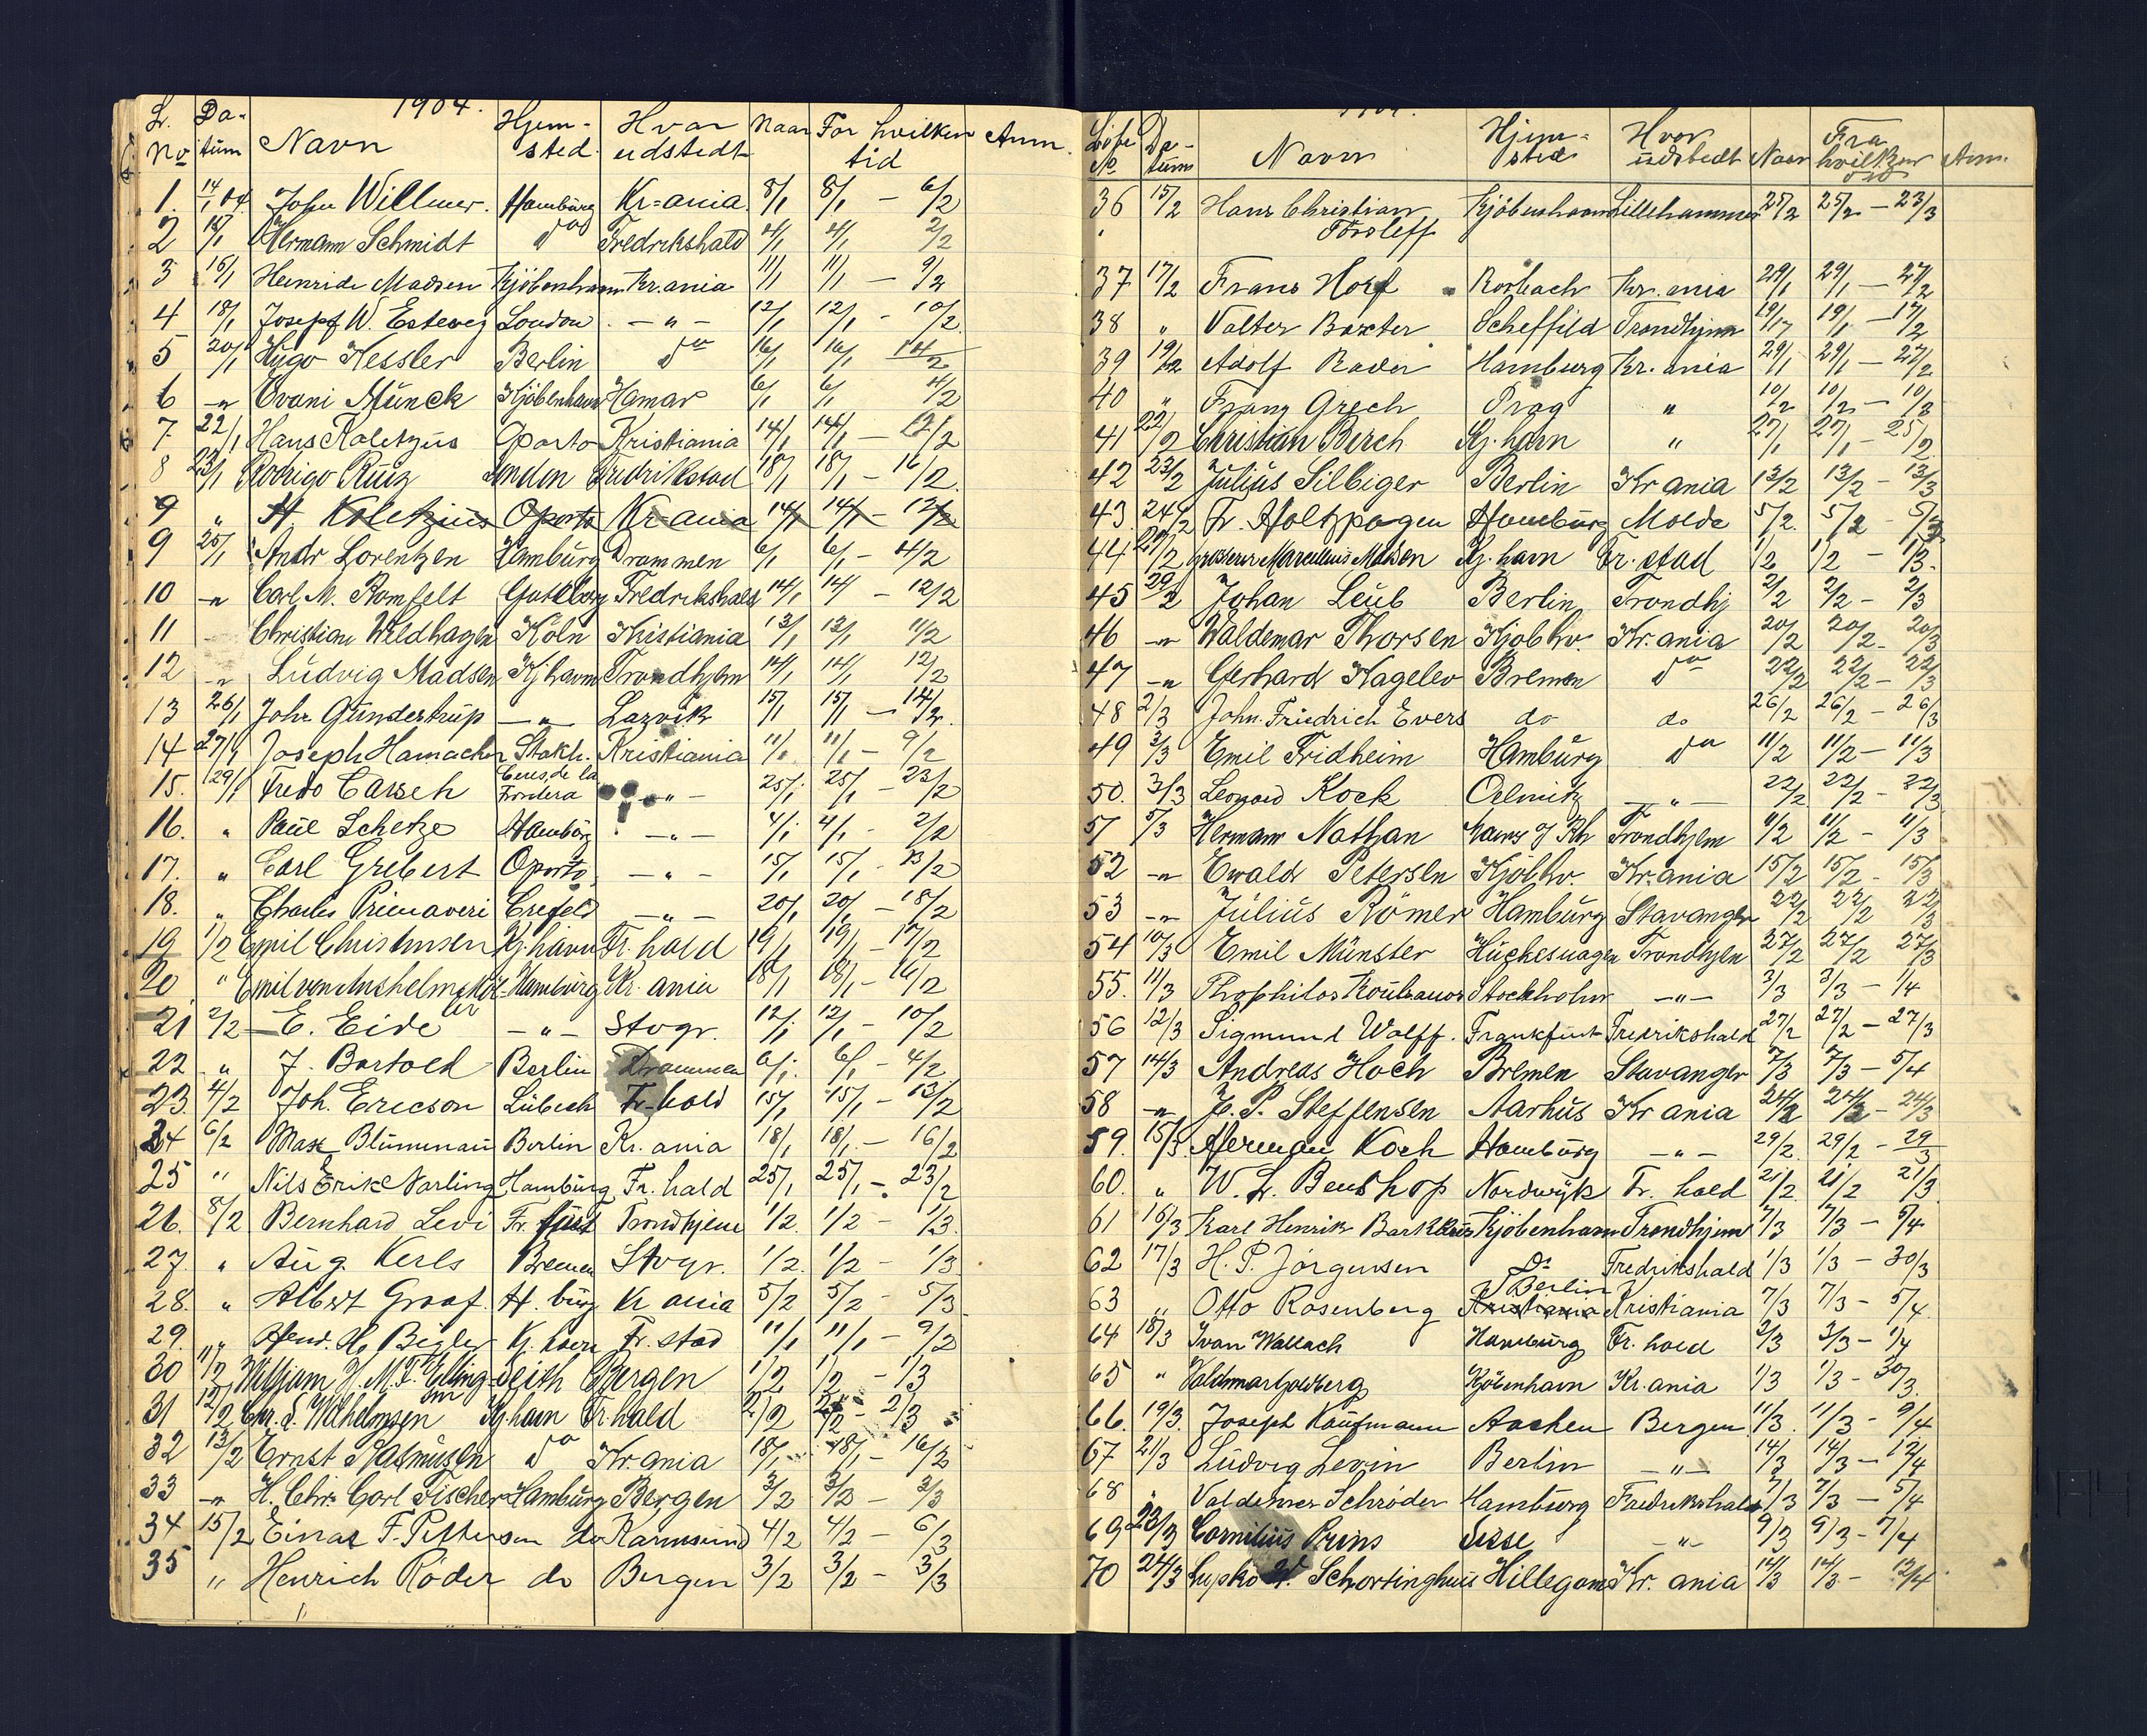 1904.
L. No Da-tum Navn Hjem-sted. Hvor udstedt Naar For hvilken tid Anm.
1. 14/1 04. John Willmer. Hamburg Kr=ania 8/1 8/1 - 6/2
2 15/1 Hermann Schmidt do Fredrikshald 4/1 4/1 2/2
3 16/1 Henrich Madsen Kjöbenhavn Kr.ania 11/1 11/1 - 9/2
4 18/1 Josepf W. Esteveg London - " - 12/1 12/1 - 10/2
5 20/1 Hugo Kessler Berlin do 16/1 16/1 14/2
6 - " Ovani Münck Kjöbenhavn Hamar 6/1 6/1 4/2
7 22/1 Hans Koletzus Oporto Kristiania 14/1 14/1 - 12/2
8 23/1 Rodrigo Ruiz London Fredrikstad 18/1 18/1 - 16/2
9 " H. Koletzius Oporto Kr-ania 14/1 14/1 - 12/2
9 25/1 Andr Lorentzen Hamburg Drammen 6/1 6/1 - 4/2
10 - " Carl M. Romfelt Guteborg Fredrikshald 14/1 14/1 - 12/2
11 Christian Wildhagen Köln Kristiania 13/1 13/1 11/2
12 - " Ludvig Madsen Kjhavn Trondhjem 14/1 14/1 12/2
13 26/1 Johr Gunderstrup - " - Larvik 15/1 15/1 - 14/2
14 27/1 Joseph Hamacher Stokh. Kristiania 11/1 11/1 - 9/2
15. 29/1 Fredo Carsch Ceres, de la Frontera - " - 25/1 25/1 - 23/2
16. " Paul Schetze Hamburg - " - 4/1 4/1 - 2/2
17. " Carl Grebert Oporto - " - 15/1 15/1 - 13/2
18. " Charles Primaveri Crefeld - " - 20/1 20/1 - 18/2
19 1/2 Emil Christensen Kj.havn Fr. hald 19/1 19/1 - 17/2
20 " Emil von Anshelm Hamburg Kr. ania 18/1 18/1 - 16/2
21 2/2 E. Eide - " - Stvgr. 12/1 12/1 - 10/2
22 " J. Bartold Berlin Drammen 6/1 6/1 - 4/2
23. 4/2 Joh. Ericson Lübech Fr-hald 15/1 15/1 - 13/2
24 6/2 Max Blumenau Berlin Kr. ania 18/1 18/1 - 16/2
25 " Nils Erik Narling Hamburg Fr. hald 25/1 25/1 - 23/2
26. 8/2 Bernhard Levi Fr. furt Trondhjem 1/2 1/2 - 1/3
27. " Aug. Kerls Bremen Stvgr. 1/2 1/2 - 1/3
28. " Albert Graaf. H. burg Kr ania 5/2 5/2 - 5/3
29. " Hend. H. Bigler Kj. havn Fr. stad 11/1 11/1 - 9/2
30 11/2 William H. M. Leith Bergen 1/2 1/2 - 1/3
31 12/2 Chr. S. Wilhelmsen Kjhavn Fr.hald 2/2 2/2 - 2/3
32 13/2 Ernst Rasmusen do Kr.ania 18/1 18/1 - 16/2
33 - " H. Chr. Carl Fischer Hamburg Bergen 3/2 3/2 - 3/3
34 15/2 Einar F. Pettersen do Rarmsund 4/2 4/2 - 6/3
35 " Henrich Röder do Bergen 3/2 3/2 - 3/3
Löbe No Da-tum Navn Hjem-sted Hvor udstedt Naar Fra hvilken tid Anm.
36 15/2 Hans Christian Kjöbenhavn Lillehammer 25/2 25/2 - 23/3
Törsleff
37 17/2 Frans Horf Rorbach Kr. ania 29/1 29/1 - 27/2
38 " Valter Baxter Scheffild Trondhjem 19/1 19/1 - 17/2
39 19/2 Adolf Rader Hamburg Kr. ania 29/1 29/1 - 27/2
40 " Franz Grech Prag " 10/2 10/2 - 10/3
41 22/2 Christian Berch Kj. havn " 27/1 27/1 - 25/2
42 23/2 Julius Silbiger Berlin Kr ania 13/2 13/2 - 13/3
43. 24/2 Fr. Holtzpagen Hamburg Molde 5/2. 5/2 - 5/3
44 Marcellius Madsen Kj. havn Fr. stad 1/2 1/2 - 1/3.
45 29/2 Johan Leub Berlin Trondhj 2/2 2/2 - 2/3
46 - " Waldemar Thorsen Kjobhv. Kr. ania 20/2 20/2 - 20/3
47 - " Gerhard Hagelev Bremen do 22/2 22/2 - 22/3
48 2/3 John. Friedrich Evers do do 26/2 26/2 - 26/3
49 3/3 Emil Fridheim Hamburg do 11/2 11/2 - 11/3
50. 3/3 Leopold Kock Oelmitz - " - 22/2 22/2 - 22/3
51 5/3 Hermann Nathan Trondhjem 11/2 11/2 - 11/3
52 - " Ewald Petersen Kjöbhv. Kr.ania 15/2 15/2 - 15/3
53 - " Julius Römer Hamburg Stavanger 22/2 22/2 22/3
54 10/3 Emil Münster Hückesvagen Trondhjem 27/2 27/2 27/3
55. 11/3 Thophilos Stockholm - " - 3/3 3/3 - 1/4
56 12/3 Sigmund Wolff. Frankfurt Fredrikshald 27/2 27/2 - 27/3
57 14/3 Andreas Hoch Bremen Stavanger 7/3 7/3 - 5/4
58 - " J. P. Steffensen Aarhus Kr ania 24/2 24/2 - 24/3
59. 15/3 Herman Koch Hamburg - " - 29/2 29/2 - 29/3
60. " W. L. Benshop Nordwyk Fr. hald 21/2 21/2 21/3
61 16/3 Karl Henrik Kjöbenhavn Trondhjem 7/3 7/3 - 5/4
62 17/3 H. P. Jörgensen Do Fredrikshald 1/3 1/3 - 30/3
Berlin
63 " Otto Rosenberg Kristiania Kristiania 7/3 7/3 - 5/4
64 18/3 Ivan Wallach Hamburg Fr. hald 3/3 3/3 - 1/4
65 " Valdmar Goldberg Köbenhavn Kr.ania 1/3 1/3 - 30/3.
66. 19/3. Joseph Kaufmann Aachen Bergen 11/3. 11/3 - 9/4
67 21/3 Ludvig Levin Berlin - " - 14/3 14/3 - 12/4
68 " Valdemar Schröder Hamburg Fredrikshald 7/3 7/3 - 5/4
69 23/3 Cornilius Prins Lisse - " - 9/3 9/3 - 7/4
70 24/3 Lupko W. Schortinghuis Hillegom Kr. ania 14/3 14/3 - 12/4